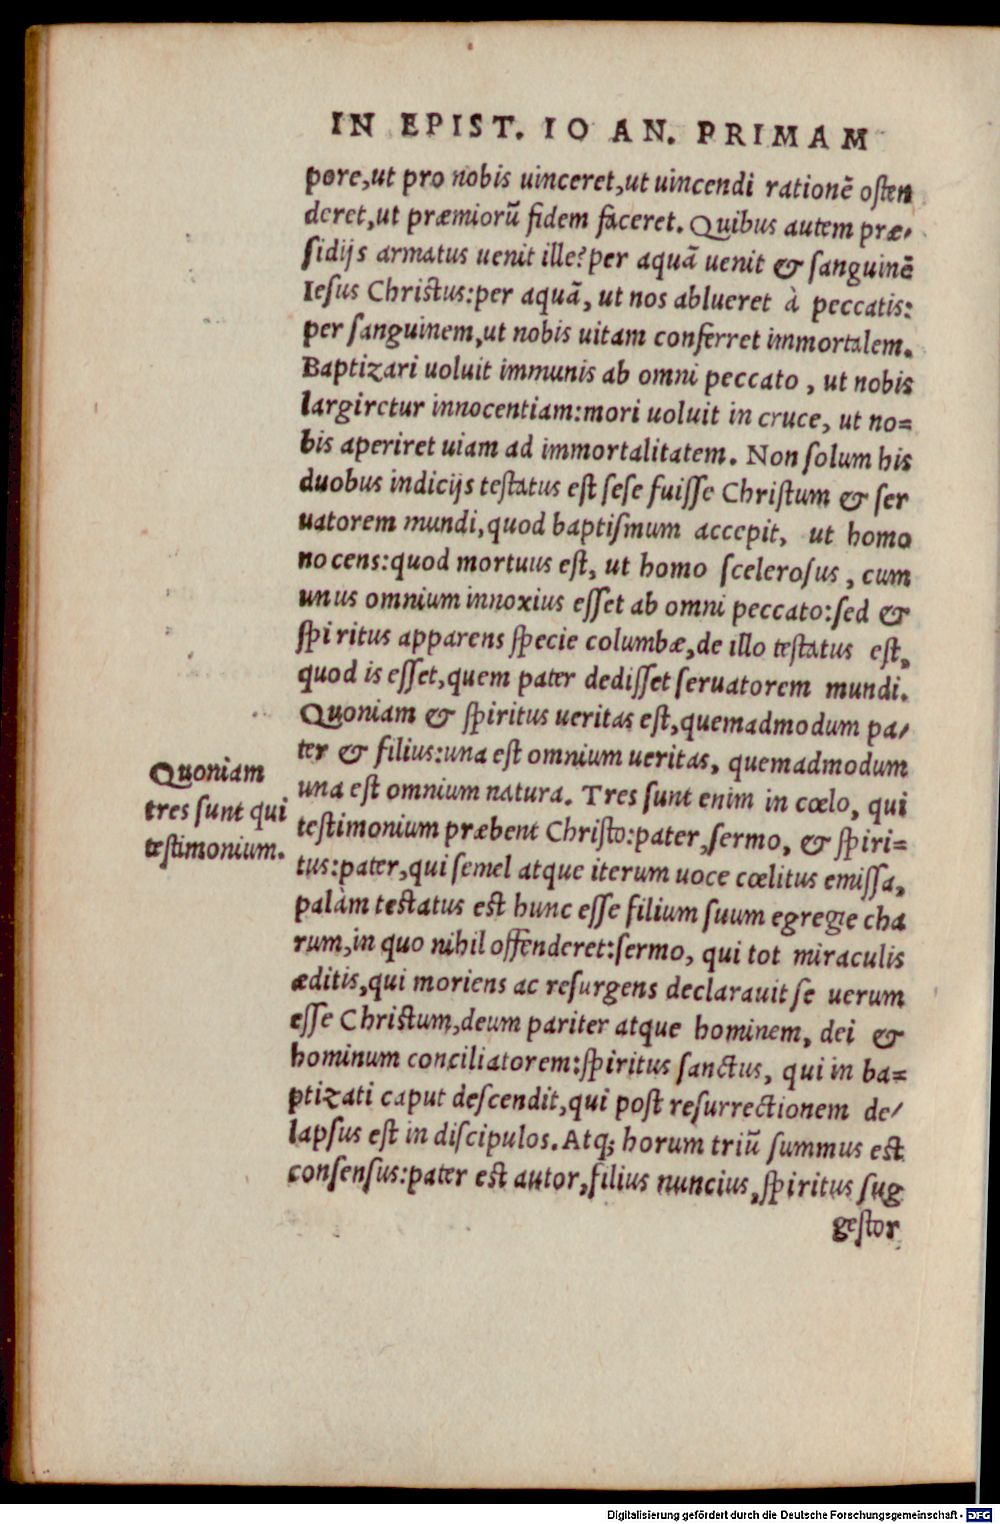 IN EPIST. IO AN. PRIMAM
pore, ut pro nobis uinceret, ut uincendi rationē osten
deret, ut præmiorū fidem faceret. Quibus autem præ-
sidijs armatus uenit ille? per aquā uenit & sanguinē
Iesus Christus: per aquā, ut nos ablueret à peccatis:
per sanguinem, ut nobis uitam conferret immortalem.
Baptizari uoluit immunis ab omni peccato, ut nobis
largiretur innocentiam: mori uoluit in cruce, ut no=
bis aperiret uiam ad immortalitatem. Non solum his
duobus indicijs testatus est sese fuisse Christum & ser
uatorem mundi, quod baptismum accepit, ut homo
nocens: quod mortuus est, ut homo scelerosus, cum
unus omnium innoxius esset ab omni peccato: sed &
spiritus apparens specie columbæ, de illo testatus est,
quod is esset, quem pater dedisset seruatorem mundi.
Quoniam & spiritus ueritas est, quemadmodum pa-
ter & filius: una est omnium ueritas, quemadmodum
una est omnium natura. Tres sunt enim in cœlo, qui
testimonium præbent Christo: pater, sermo, & spiri=
tus: pater, qui semel atque iterum uoce cœlitus emissa,
palàm testatus est hunc esse filium suum egregie cha
rum, in quo nihil offenderet: sermo, qui tot miraculis
æditis, qui moriens ac resurgens declarauit se uerum
esse Christum, deum pariter atque hominem, dei &
hominum conciliatorem: spiritus sanctus, qui in ba=
ptizati caput descendit, qui post resurrectionem de-
lapsus est in discipulos. Atq; horum triū summus est
consensus: pater est autor, filius nuncius, spiritus sug
gestor
Quoniam
tres sunt qui
testimonium.
Digitalisierung gefördert durch die Deutsche Forschungsgemeinschaft - DFG